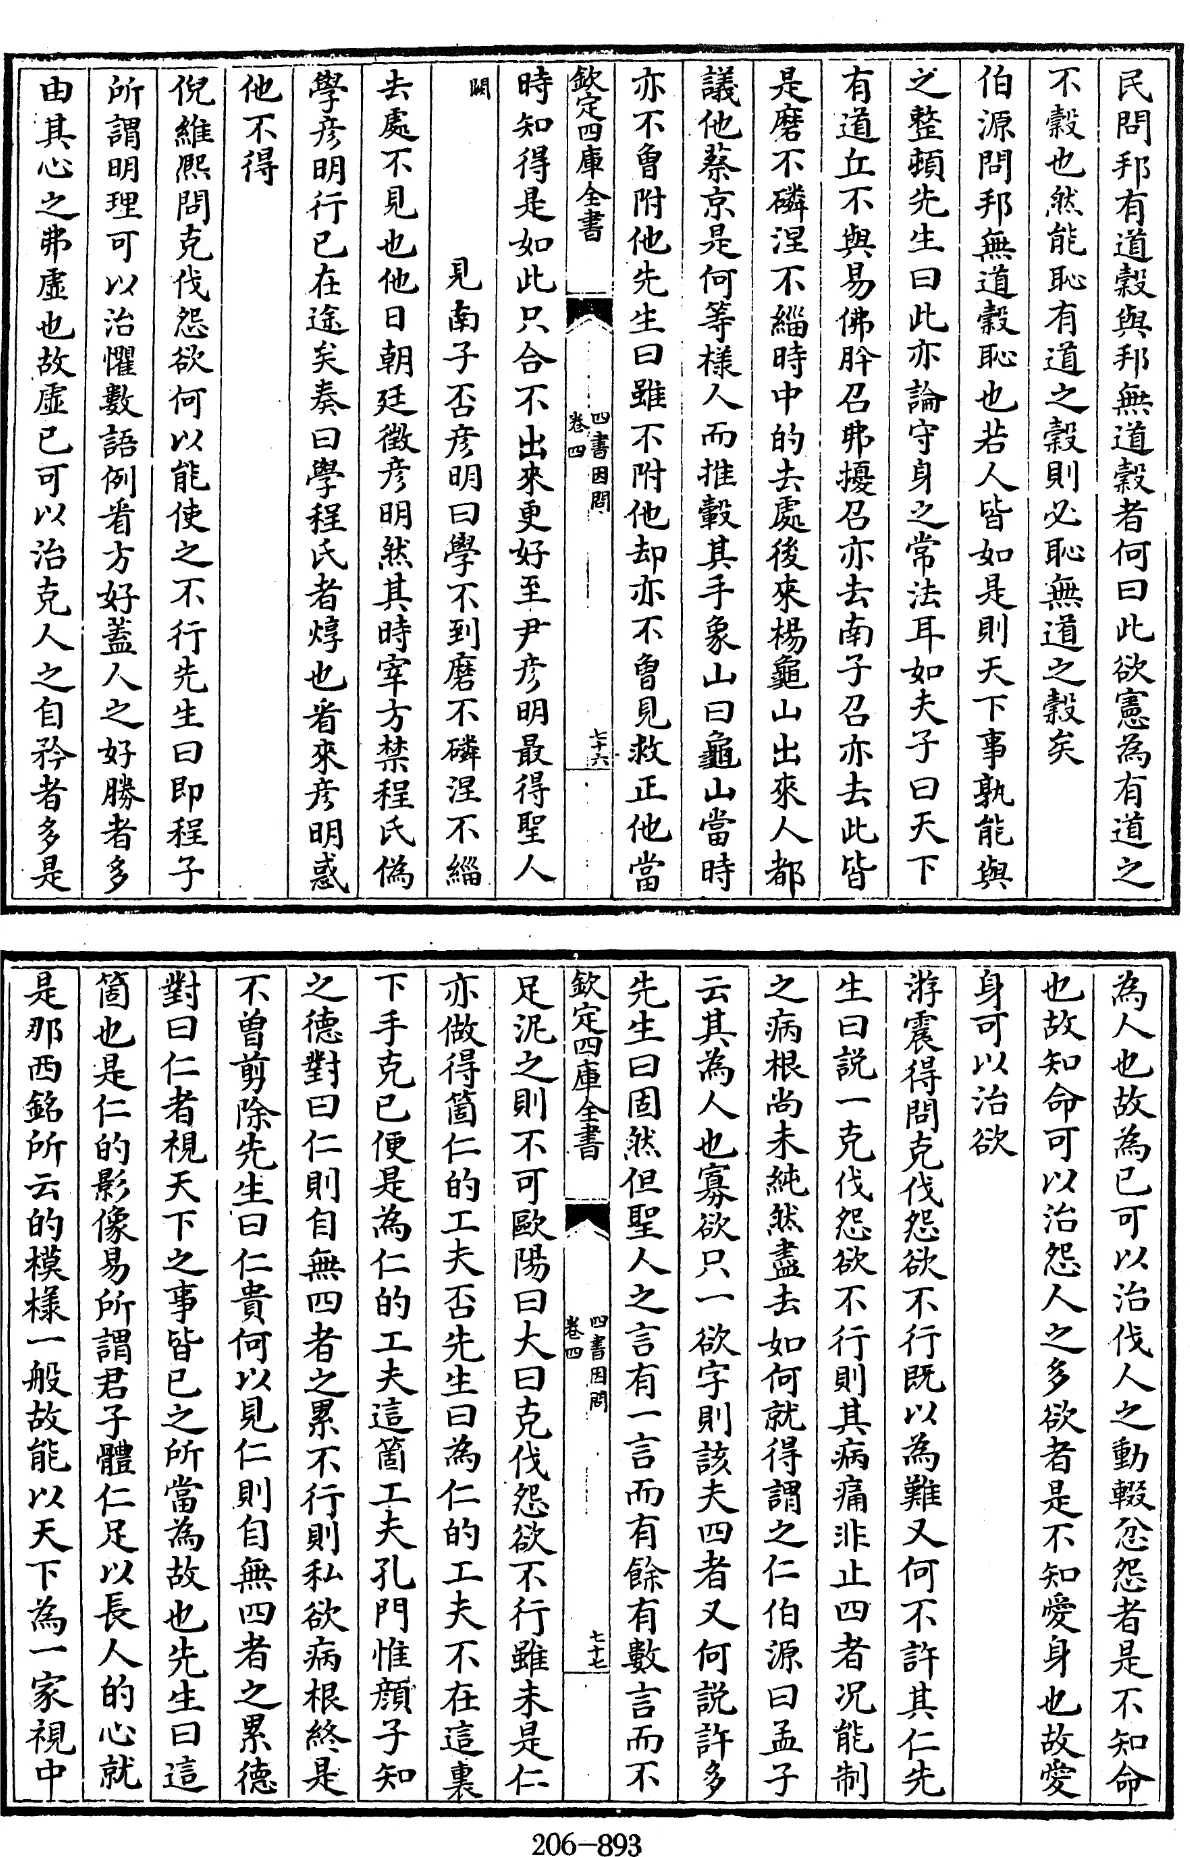 民問邦有道穀與邦無道穀者何曰此欲憲為有道之
不穀也然能恥有道之穀則必恥無道之穀矣
伯源問邦無道穀恥也若人皆如是則天下事孰能與
之整頓先生曰此亦論守身之常法耳如夫子曰天下
有道丘不與易佛肸召弗擾召亦去南子召亦去此皆
是磨不磷涅不緇時中的去處後來楊龜山出來人都
議他蔡京是何等様人而推轂其手象山曰龜山當時
亦不曾附他先生曰雖不附他却亦不曾見救正他當
欽定四庫全書
四書因問
卷四
七十六
時知得是如此只合不出來更好至尹彦明最得聖人
闕
見南子否彦明曰學不到磨不磷涅不緇
去處不見也他日朝廷徵彦明然其時宰方禁程氏偽
學彦明行已在途矣奏曰學程氏者焞也看來彦明惑
他不得
倪維熙問克伐怨欲何以能使之不行先生曰即程子
所謂明理可以治懼數語例看方好蓋人之好勝者多
由其心之弗虛也故虛已可以治克人之自矜者多是
為人也故為已可以治伐人之動輙忿怨者是不知命
也故知命可以治怨人之多欲者是不知愛身也故愛
身可以治欲
游震得問克伐怨欲不行既以為難又何不許其仁先
生曰説一克伐怨欲不行則其病痛非止四者况能制
之病根尚未純然盡去如何就得謂之仁伯源曰孟子
云其為人也寡欲只一欲字則該夫四者又何説許多
先生曰固然但聖人之言有一言而有餘有數言而不
欽定四庫全書
四書因問
卷四
七十七
足泥之則不可歐陽曰大曰克伐怨欲不行雖未是仁
亦做得箇仁的工夫否先生曰為仁的工夫不在這裏
下手克已便是為仁的工夫這箇工夫孔門惟顔子知
之德對曰仁則自無四者之累不行則私欲病根終是
不曾剪除先生曰仁貴何以見仁則自無四者之累德
對曰仁者視天下之事皆已之所當為故也先生曰這
箇也是仁的影像易所謂君子體仁足以長人的心就
是那西銘所云的模様一般故能以天下為一家視中
206-893